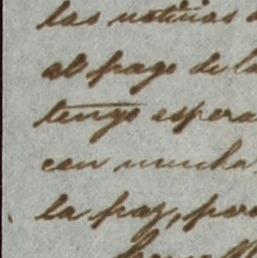 las noticias
el pago de la
tengo espera
con mucha
la paz, par